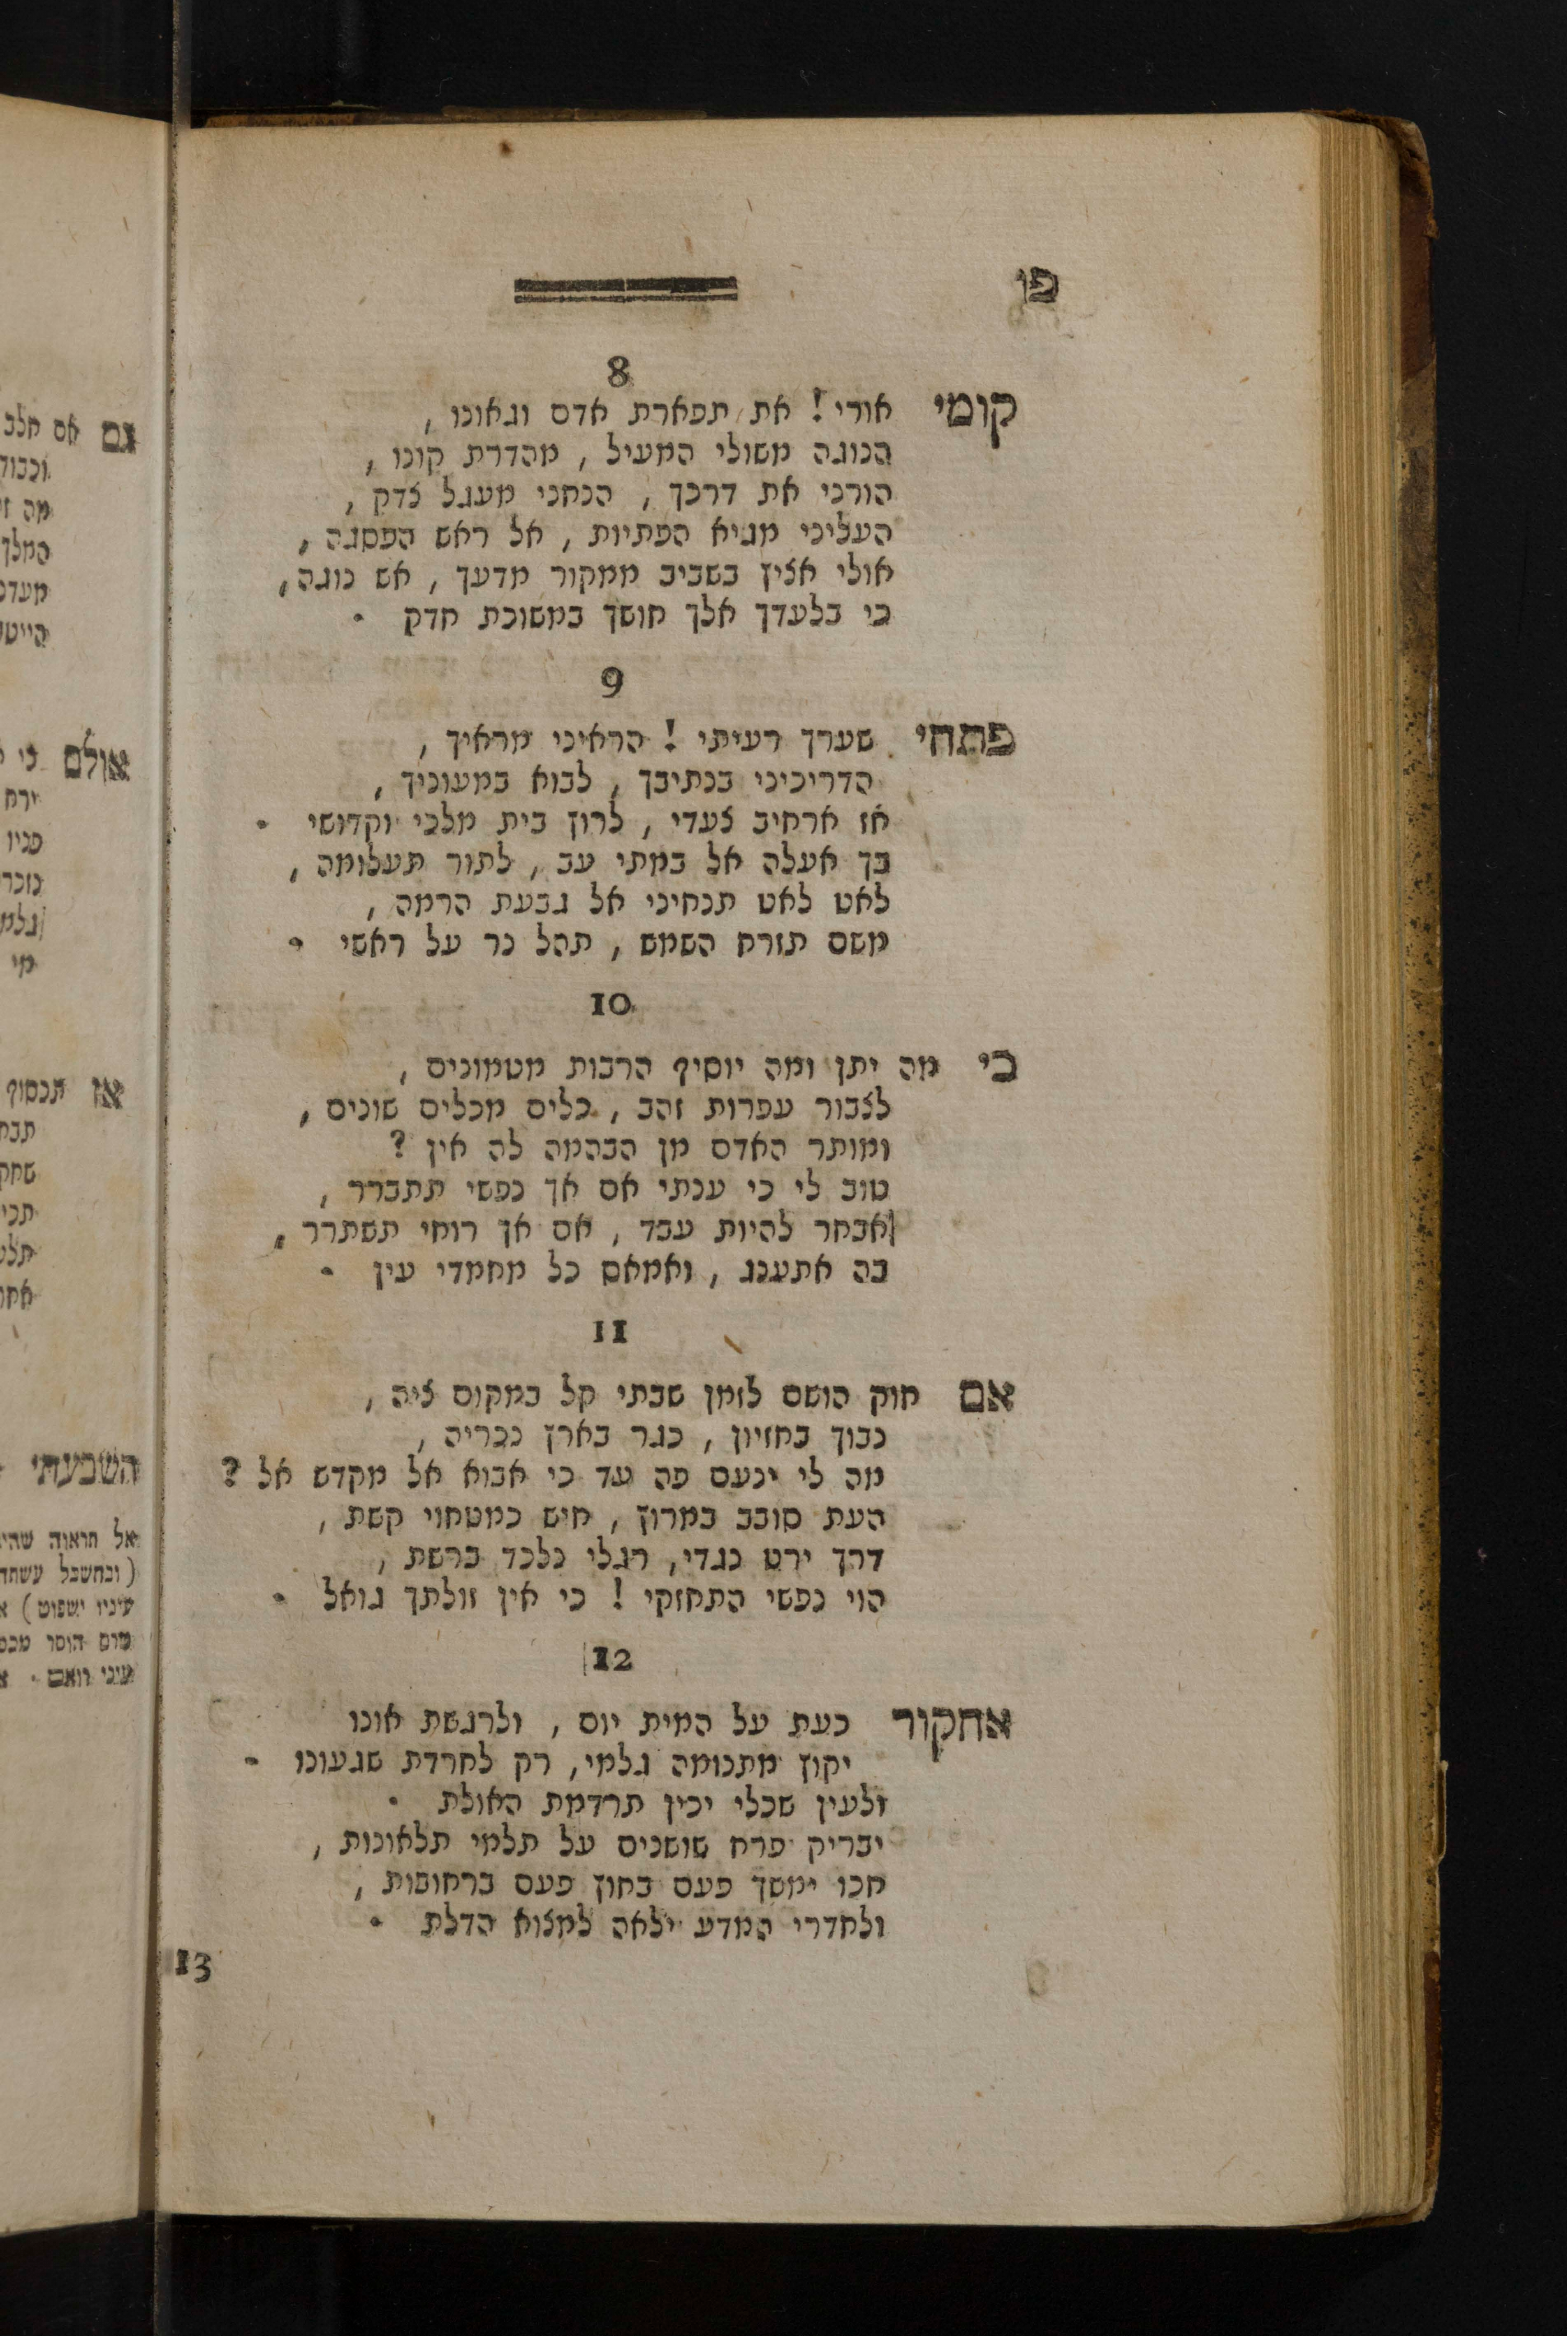 פו
8
קומי אורי! את תפארת אדם וגאונו,
הנוגה משולי המעיל, מהדרת קונו,
הורני את דרכך, הנחני מעגל צדק,
העליני מגיא הפתיות, אל ראש הפסגה,
אולי אציץ בשביב ממקור מדעך, אש נוגה,
כי בלעדך אלך חושך במשוכת חדק.
9
פתחי שערך רעיתי! הראיני מראיך,
הדריכיני בנתיבך, לבוא במעוניך,
אז ארחיב צעדי, לרוץ בית מלכי וקדושי.
בך אעלה אל במתי עב, לתור תעלומה,
לאט לאט תנחיני אל גבעת הרמה,
משם תזרח השמש, תהל נר על ראשי.
10
כי מה יתן ומה יוסיף הרבות מטמונים,
לצבור עפרות זהב, כלים מכלים שונים,
ומותר האדם מן הבהמה לה אין?
טוב לי כי עניתי אם אך נפשי תתברר,
אבחר להיות עבד, אם אך רוחי תשתרר,
בה אתענג, ואמאס כל מחמדי עין.
11
אם חוק הושם לזמן שבתי קל במקום ציה,
נבוך בחזיון, כגר בארץ נכריה,
מה לי ינעם פה עד כי אבוא אל מקדש אל?
העת סובב במרוץ, חיש כמטחוי קשת,
דרך ירט נגדי, רגלי נלכד ברשת,
הוי נפשי התחזקי! כי אין זולתך גואל.
12
אחקור כעת על המית יום, ולרגשת אונו
יקוץ מתנומה גלמי, רק לחרדת שגעונו.
ולעין שכלי יכין תרדמת האולת.
יבריק פרח שושנים על תלמי תלאונות,
חכו ימשך פעם בחוץ פעם ברחובות,
ולחדרי המדע ילאה למצוא הדלת.
13
גם אם חלב
המלך
אולם כי
ירח
פניו
מי
אז תכסוף
השבעתי